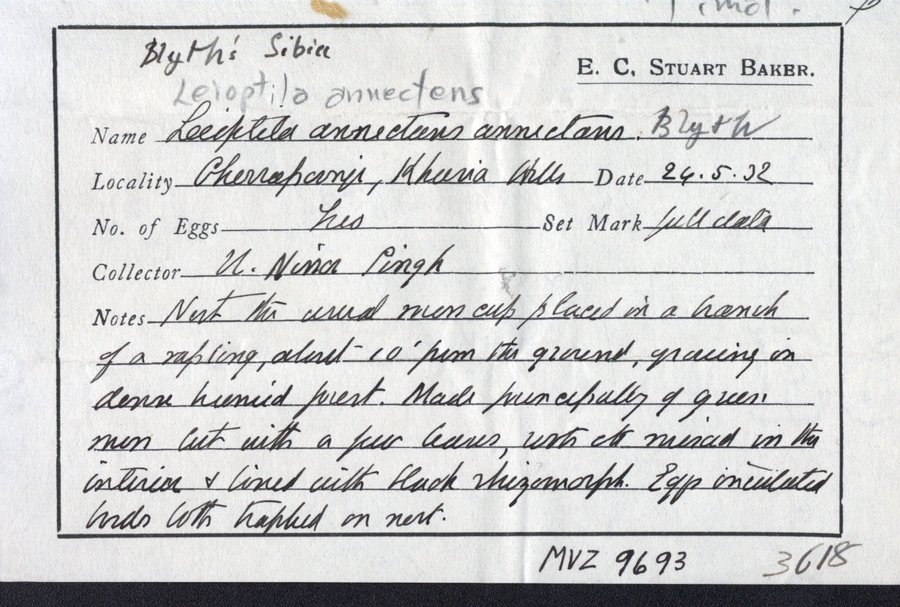 Timal.
Blyth's Sibia
E. C. STUART BAKER.
Leioptila annectens
Name Leioptila annectans annectans. Blyth
Locality Cherrapunji, Khasia Hills Date 24.5.32
No. of Eggs two Set Mark full data
Collector U. Nina Singh
Notes Nest the usual moss cup placed in a branch
of a sapling, about 10' from the ground, growing in
dense humid forest. Made principally of green
moss but with a few leaves, roots etc mixed in the
interior & lined with black rhizomorph. Eggs incubated
birds both trapped on nest.
MVZ 9693 3618